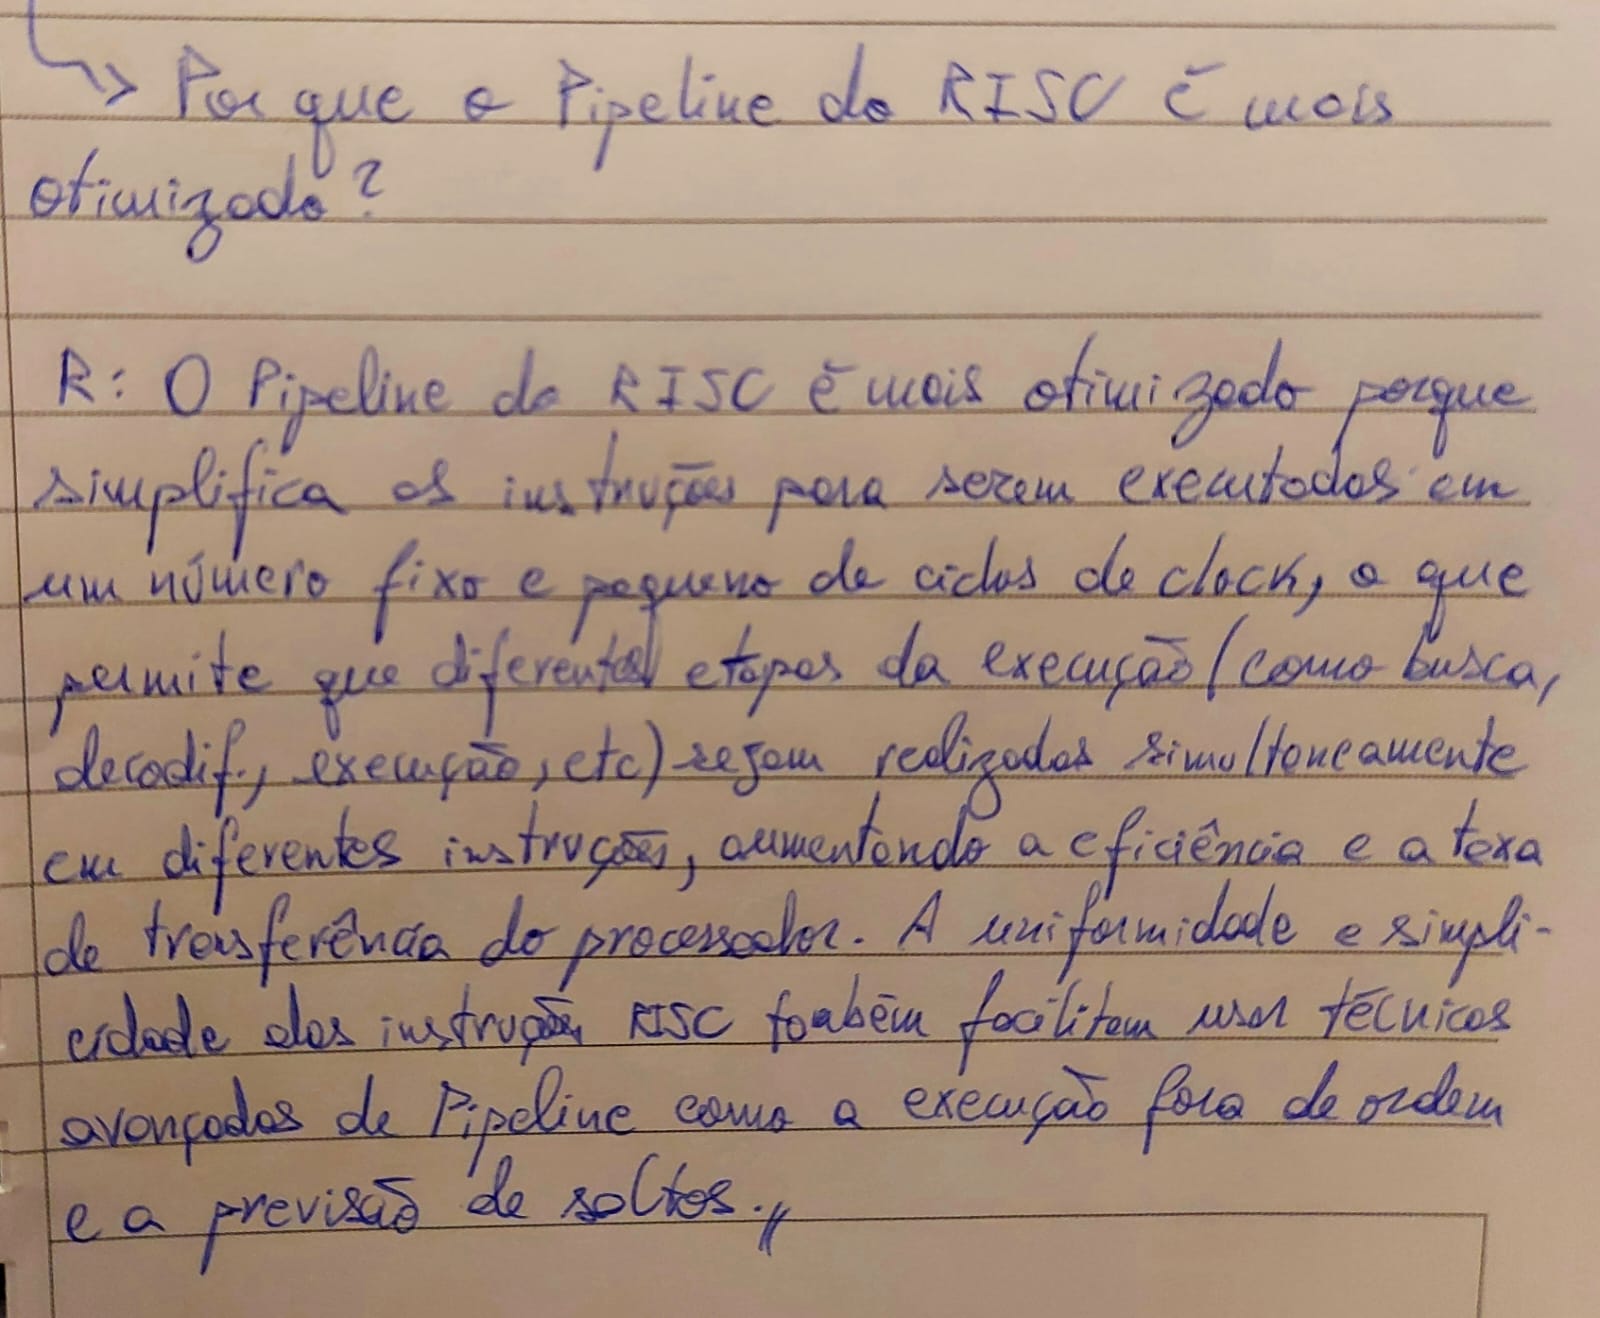 ↳ Por que o Pipeline do RISC é mais
otimizado?
R: O Pipeline do RISC é mais otimizado porque
simplifica as instruções para serem executadas em
um número fixo e pequeno de ciclos de clock, o que
permite que diferentes etapas da execução (como busca,
decodif., execução, etc) sejam realizados simultaneamente
em diferentes instruções, aumentando a eficiência e a taxa
de transferência do processador. A uniformidade e simpli-
cidade das instruções RISC também facilitam usar técnicas
avançadas de Pipeline como a execução fora de ordem
e a previsão de saltos.//